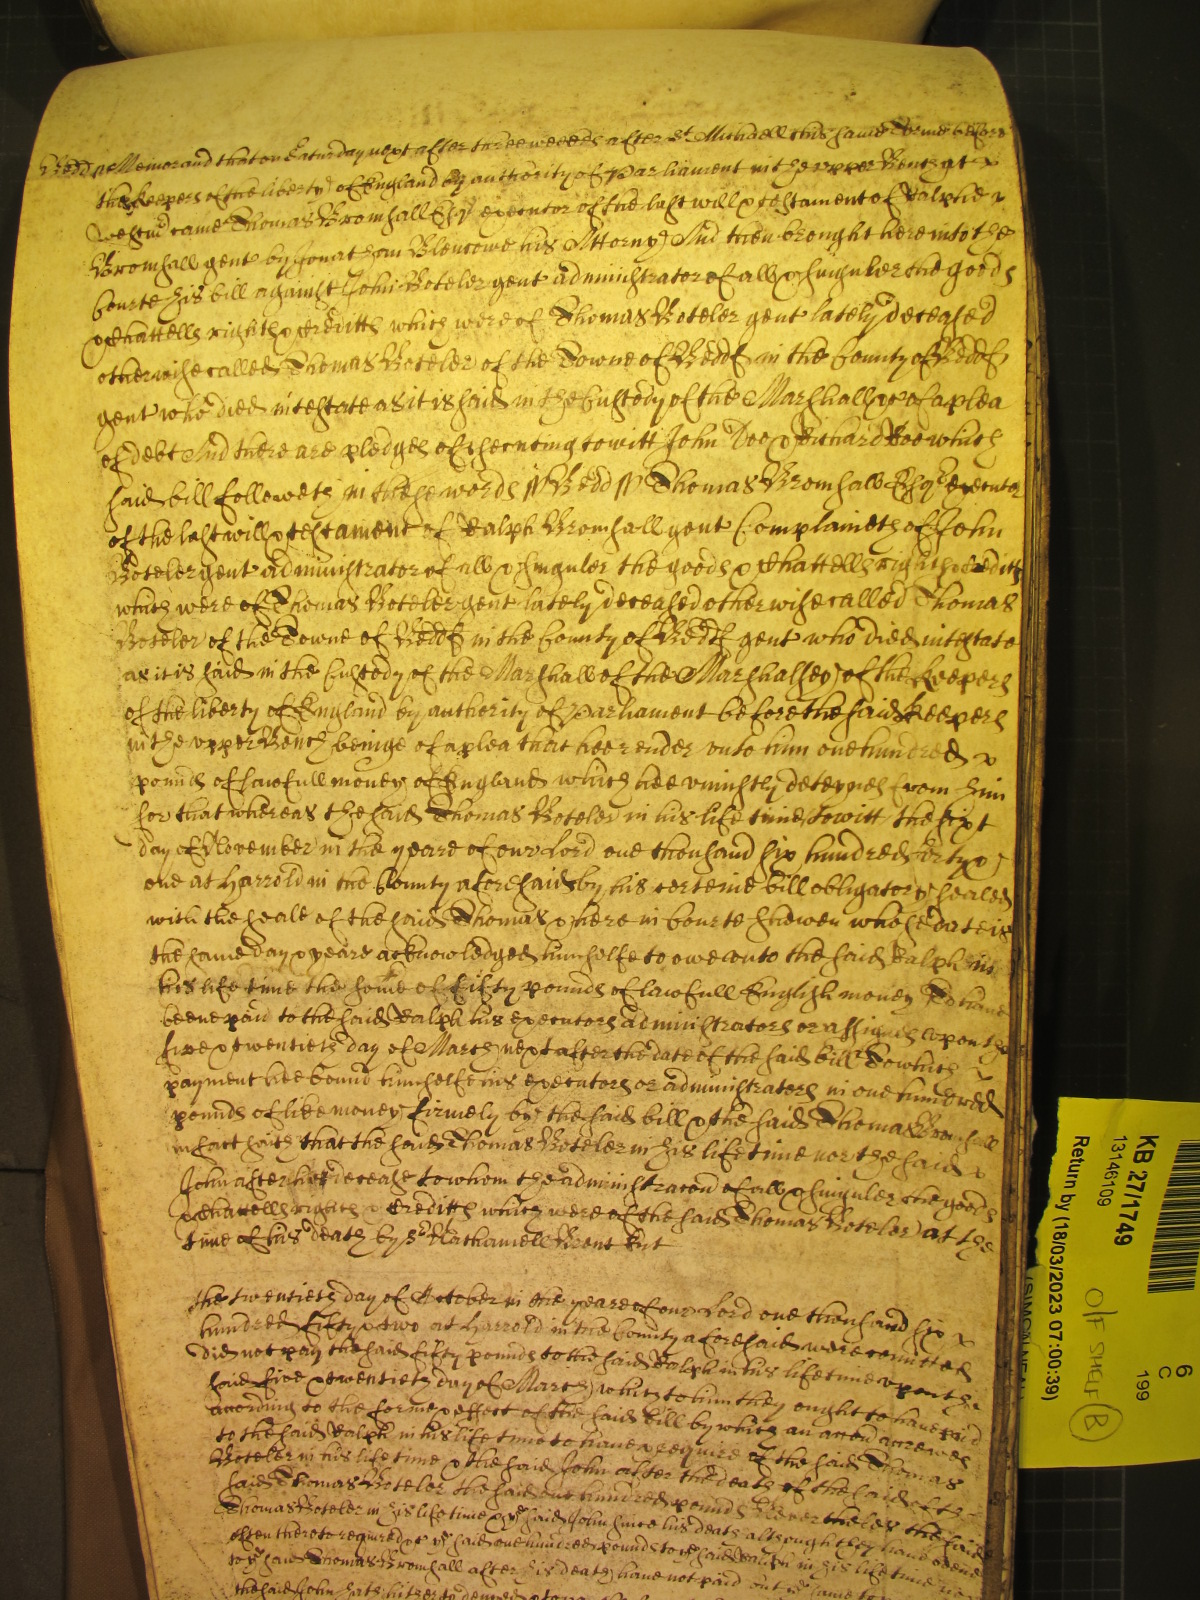 Bedd ss Memorand that on Saturday next after three weekes after St Michaell this same Terme before
the keepers of the liberty of England by authority of Parliament in the upper Bench at
Westmr came Thomas Bromhall Esqr executor of the last will & testament of Ralph
Bromhall gent by Jonathan Blencowe his Attorny And then brought here into the
Courte his bill against John Boteler gent administrator of all & singuler the goods
& Chattells rights & creditts which were of Thomas Boteler gent lately deceased
otherwise called Thomas Boteler of the Towne of Bedd in the County of Bedd
gent who died intestate as it is said in the Custody of the Marshall &c of a plea
of debt And there are pledges of prosecuting to witt John Doe & Richard Roe which
said bill followeth in these words ss Bedd ss Thomas Bromhall Esqr executor
of the last will & testament of Ralph Bromhall gent Complaineth of John
Boteler gent administrator of all & singuler the goods & Chattells rights & creditts
which were of Thomas Boteler gent lately deceased otherwise called Thomas
Boteler of the Towne of Bedd in the County of Bedd gent who died intestate
as it is said in the Custody of the Marshall of the Marshallsey of the keepers
of the liberty of England by authority of Parliament before the said keepers
in the upper Bench beinge of a plea that hee render unto him one hundred
pounds of lawfull money of England which hee uniustly deteynes from him
for that whereas the said Thomas Boteler in his life time to witt the sixt
day of November in the yeare of our Lord one thousand six hundred forty &
one at Harrold in the County aforesaid by his certeine bill obligatory sealed
with the seale of the said Thomas & here in Courte shewen whose date is
the same day & yeare acknowledged himselfe to owe unto the said Ralph in
his life time the some of fifty pounds of lawfull English money To have
beene paid to the said Ralph his executors administrators or assignes upon the
five & twentieth day of March next after the date of the said bill To which
payment hee bound himselfe his executors or administrators in one hundred
pounds of like money firmely by the said bill & the said Thomas Bromhall
in fact saith that the said Thomas Boteler in his life time nor the said
John after his decease to whom the administracon of all & singuler the goods
& chattells rights & Creditts which were of the said Thomas Boteler at the
time of his death by Sr Nathaniell Brent Knt
the twentieth day of October in the yeare of our Lord one thousand six
hundred fifty & two at Harrold in the County aforesaid were comitted
did not pay the said fifty pounds to the said Ralph in his life time upon the
said five & twentieth day of March which to him they ought to have paid
according to the forme & effect of the said bill by which an accon accrewed
to the said Ralph in his life time to have & require of the said Thomas
Boteler in his life time & the said John after the death of the said
said Thomas Boteler the said one hundred pounds Neverthelesse the said
Thomas Boteler in his life time & ye said John since his death although they have
often thereto required &c ye said one hundred pounds to ye said Ralph in his life time
to ye said Thomas Bromhall after his death have not paid but ye same to
the said John hath hitherto denyed
KB 27/1749
13146109
Return by (18/03/2023 07:00:39)
6
C
199
OFF SHELF
B